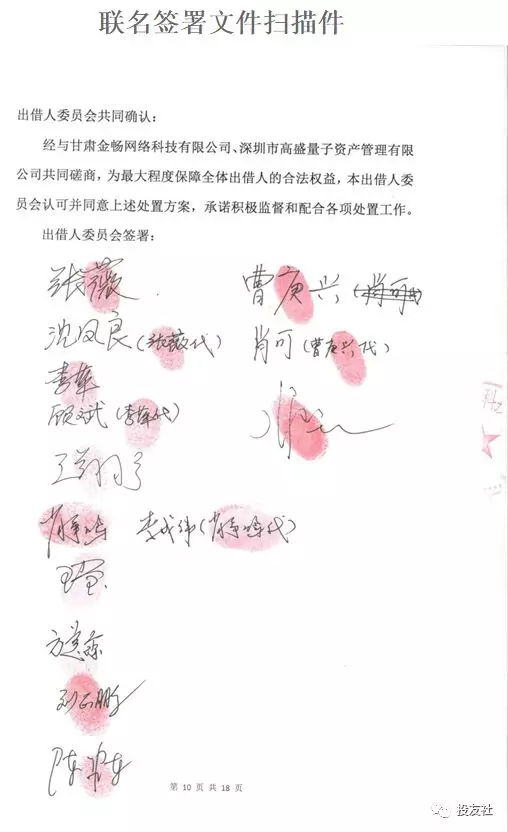 联名签署文件扫描件
出借人委员会共同确认：
经与甘肃金畅网络科技有限公司、深圳市高盛量子资产管理有限
公司共同磋商，为最大程度保障全体出借人的合法权益，本出借人委
员会认可并同意上述处置方案，承诺积极监督和配合各项处置工作。
出借人委员会签署：
张薇 曹庚兴
沈凤良（张薇代） 肖可（曹庚兴代）
李华
顾斌（李华代）
李成伟
方
刘鹏
陈
第 10 页 共 18 页
投友社